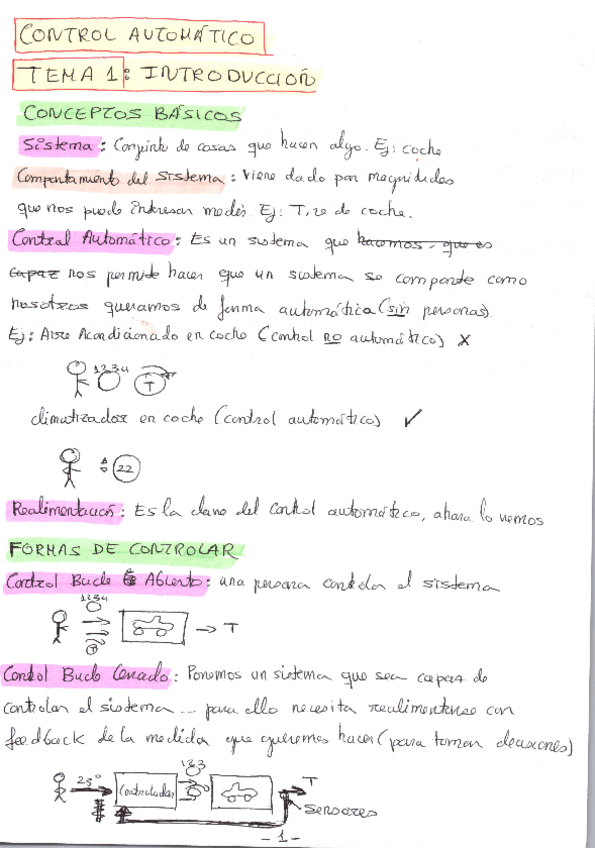 CONTROL AUTOMÁTICO
TEMA 1: INTRODUCCIÓN
CONCEPTOS BÁSICOS
Sistema: Conjunto de cosas que hacen algo. Ej: coche
Comportamiento del sistema: Viene dado por magnitudes
que nos puede interesar medir. Ej: T, v de coche.
Control Automático: Es un sistema que hacemos, que es
capaz nos permite hacer que un sistema se comporte como
nosotros queramos de forma automática (sin personas).
Ej: Aire Acondicionado en coche (control no automático) X
1 2 3 4 T
climatizador en coche (control automático) ✓
22
Realimentación: Es la clave del control automático, ahora lo vemos
FORMAS DE CONTROLAR
Control Bucle Abierto: una persona controla el sistema
1 2 3 4
T
→ T
Control Bucle Cerrado: Ponemos un sistema que sea capaz de
controlar el sistema ... para ello necesita realimentarse con
feedback de la medida que queremos hacer (para tomar decisiones)
1 2 3
23° Controlador T
Sensores
- 1 -